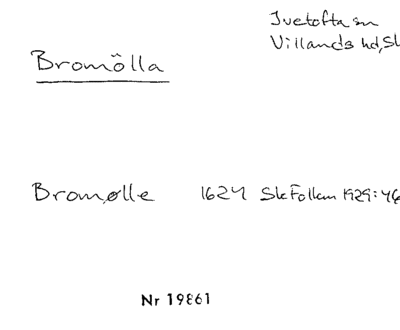 Ivetofta sn
Villands hd, Sk
Bromölla
Bromølle 1624 Sk Follem 1929:46
Nr 19861